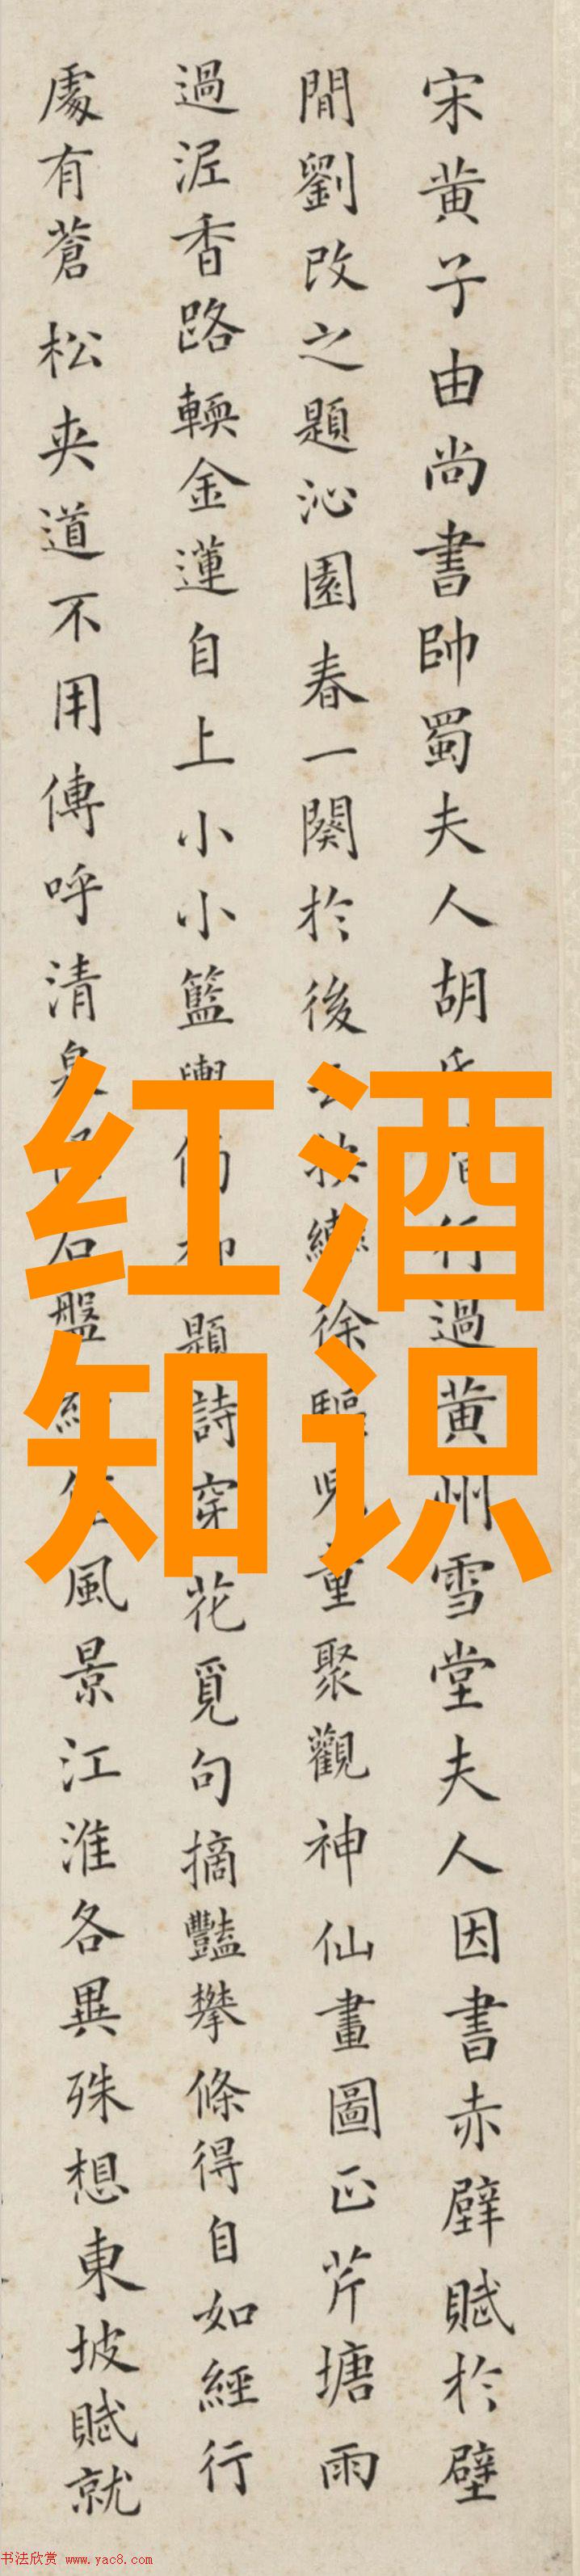 宋黄子由尚書帥蜀夫人胡氏行過黄州雪堂夫人因書赤壁賦於壁
間劉改之題沁園春一闋於後云按轡徐驅兒童聚觀神仙畫圖正芹塘雨
過泥香路輭金蓮自上小小籃輿傍柳題詩穿花覓句摘豔攀條得自如經行
處有蒼松夾道不用傳呼清泉怪石盤紆信風景江淮各異殊想東坡賦就
红酒
知识
书法欣赏 www.yac8.com